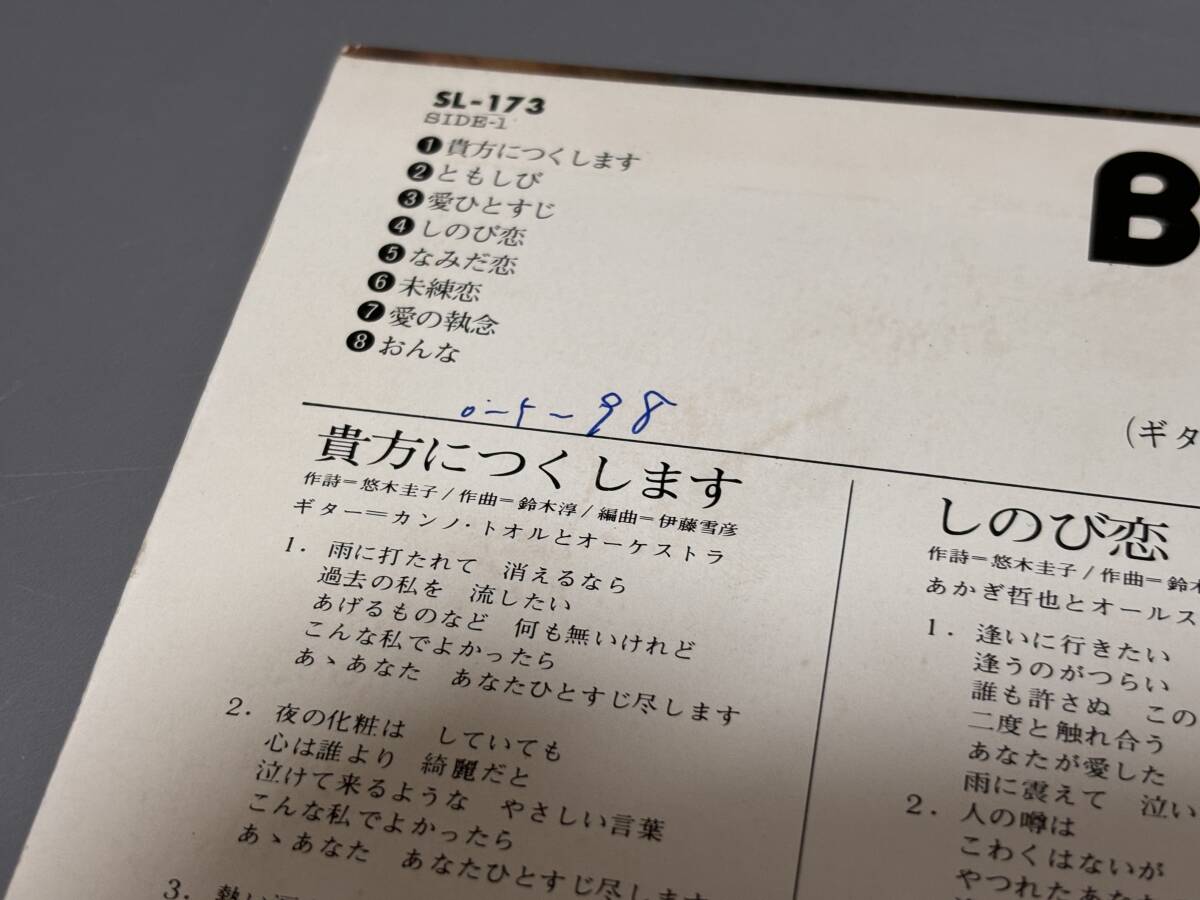 SL-173
SIDE-1
❶貴方につくします
❷ともしび
❸愛ひとすじ
❹しのび恋
❺なみだ恋
❻未練恋
❼愛の執念
❽おんな
B
(ギタ
貴方につくします
作詩=悠木圭子/作曲=鈴木淳/編曲=伊藤雪彦
ギター=カンノ・トオルとオーケストラ
1. 雨に打たれて 消えるなら
過去の私を 流したい
あげるものなど 何も無いけれど
こんな私でよかったら
あゝあなた あなたひとすじ尽します
2. 夜の化粧は していても
心は誰より 綺麗だと
泣けて来るような やさしい言葉
こんな私でよかったら
あゝあなた あなたひとすじ尽します
3. 熱い
しのび恋
作詩=悠木圭子/作曲=鈴木
あかぎ哲也とオールス
1. 逢いに行きたい
逢うのがつらい
誰も許さぬ この
二度と触れ合う
あなたが愛した
雨に震えて 泣い
2. 人の噂は
こわくはないが
やつれたあな